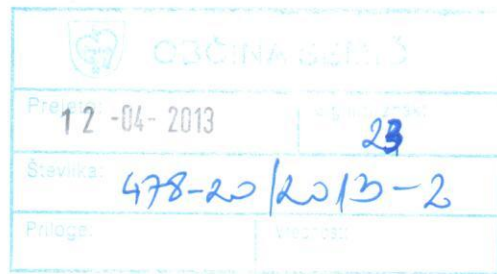 OBČINA SEMIČ
Prejeto:
12 -04- 2013
23
Številka:
478-20/2013-2
Priloge:
Vrednost: